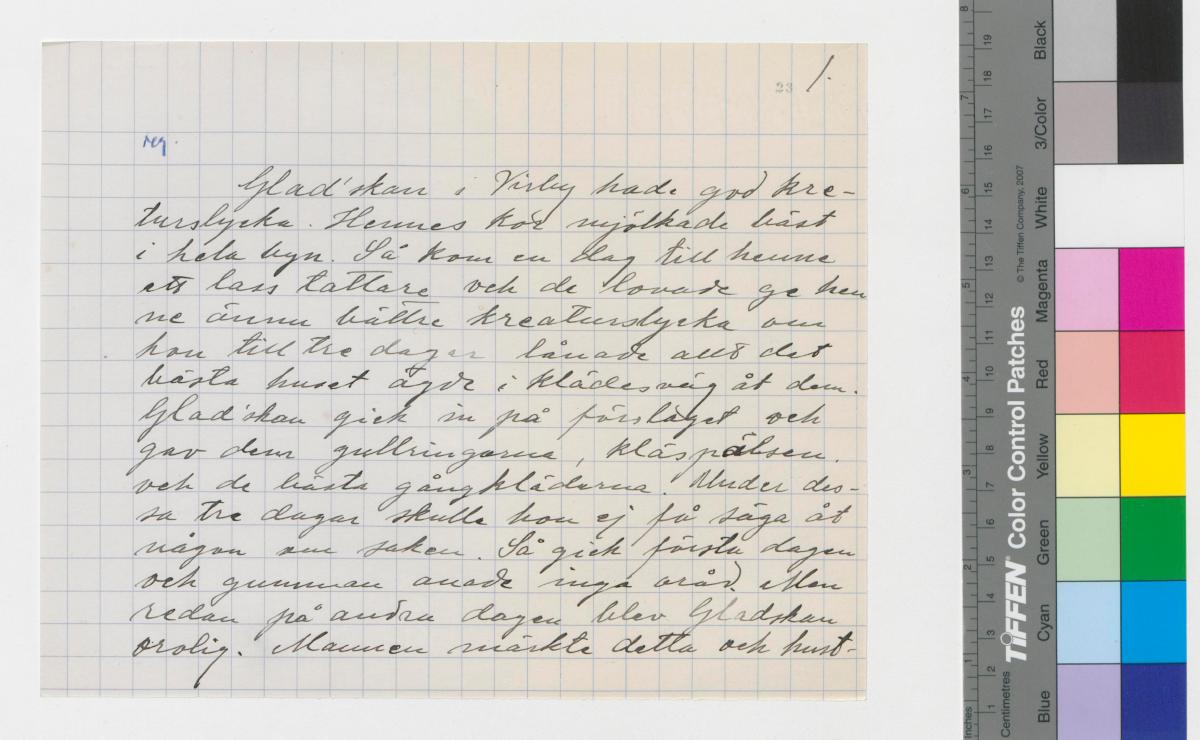 23 1.
reg.
Glad'skan i Visby hade god kre-
turslycka. Hennes kor mjölkade bäst
i hela byn. Så kom en dag till henne
ett lass tattare och de lovade ge hen
ne ännu bättre kreaturslycka om
hon till tre dagar lånade allt det
bästa huset ägde i klädesväg åt dem.
Glad'skan gick in på förslaget och
gav dem gullringarna, kläspälsen.
och de bästa gångkläderna. Under des-
sa tre dagar skulle hon ej få säga åt
någon om saken. Så gick första dagen
och gumman anade inga oråd. Men
redan på andra dagen blev Gladskan
orolig. Mannen märkte detta och hust-
Inches
1
2
3
4
5
6
7
8
Centimetres
1
2
3
4
5
6
7
8
9
10
11
12
13
14
15
16
17
18
19
TIFFEN® Color Control Patches
© The Tiffen Company, 2007
Blue
Cyan
Green
Yellow
Red
Magenta
White
3/Color
Black